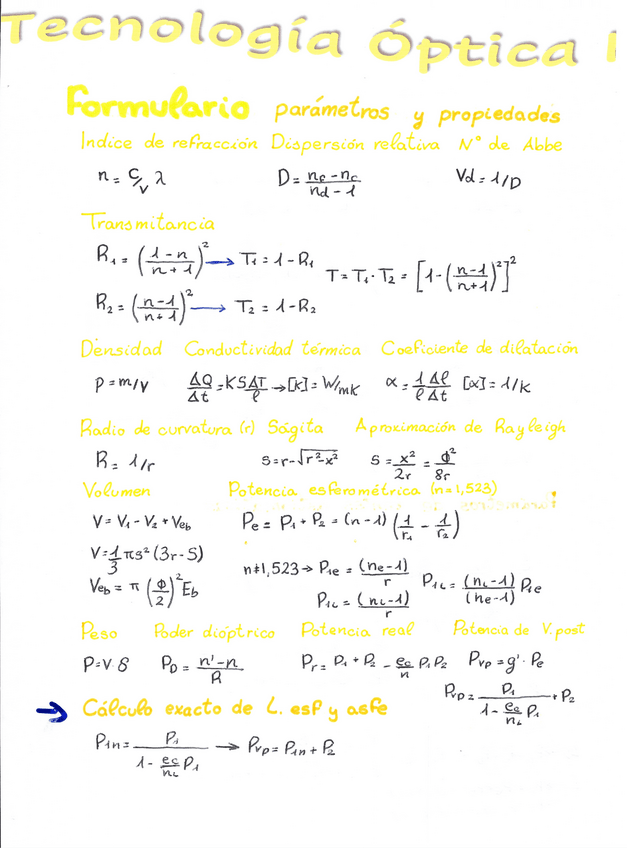 Tecnología Óptica I
Formulario parámetros y propiedades
Indice de refracción Dispersión relativa Nº de Abbe
n = C/V λ D = nF - nc / nd - 1 Vd = 1/D
Transmitancia
R1 = (1-n / n+1)² → T1 = 1 - R1
T = T1 · T2 = [1 - (n-1 / n+1)²]²
R2 = (n-1 / n+1)² → T2 = 1 - R2
Densidad Conductividad térmica Coeficiente de dilatación
ρ = m/V ΔQ/Δt = K S ΔT/l → [K] = W/mK α = 1/l Δl/Δt [α] = 1/K
Radio de curvatura (r) Ságita Aproximación de Rayleigh
R = 1/r s = r - √r² - x² s = x²/2r = ϕ²/8r
Volumen Potencia esferométrica (n=1,523)
V = V1 - V2 + Veb Pe = P1 + P2 = (n-1) (1/r1 - 1/r2)
V = 1/3 π s² (3r - s)
n≠1,523 → P1e = (ne-1)/r P1L = (nL-1)/(ne-1) P1e
Veb = π (ϕ/2)² Eb
P1L = (nL-1)/r
Peso Poder dióptrico Potencia real Potencia de V. post
P = V · δ PD = n'-n / R Pr = P1 + P2 - ec/n P1 P2 Pvp = g' · Pe
Pvp = P1 / 1 - ec/nL P1 + P2
→ Cálculo exacto de L. esf y asfe
P1n = P1 / 1 - ec/nL P1 → Pvp = P1n + P2